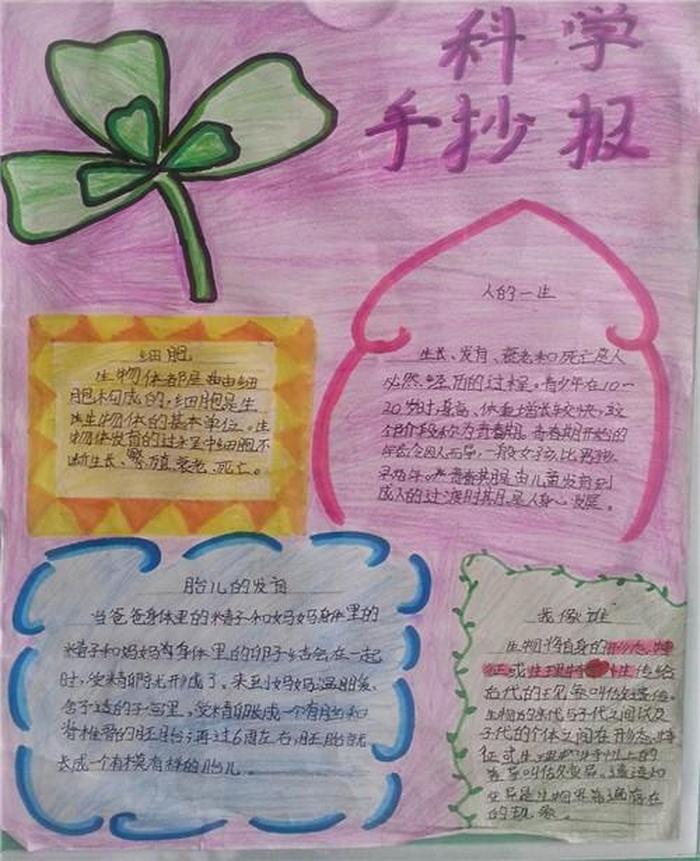 科学
手抄报
人的一生
生长、发育、衰老和死亡是人
必然经历的过程。青少年在10一
20岁时,身高、体重增长较快,这
个阶段称为青春期。青春期开始的
年龄因人而异,一般女孩比男孩
青春期是由儿童发育到
成人的过渡时期,是人身心发展。
细胞
生物体都是由细
胞构成的,细胞是生
生物体的基本单位。生
物体发育的过程中细胞不
断生长、繁殖、衰老、死亡。
胎儿的发育
当爸爸身体里的精子和妈妈身体里的
精子和妈妈身体里的卵子结合在一起
时,受精卵就形成了。来到妈妈温暖、
舒适的子宫里,受精卵长成一个有
脊椎骨的胚胎;再过6周左右,胚胎就
长成一个有模有样的胎儿。
我像谁
生物将自身的形态特
征或生理特性传给
后代的现象叫做遗传。
生物的亲代与子代之间以及
子代的个体之间在形态特
征或生理特性上的
差异叫做变异。遗传和
变异是生物界普遍存在
的现象。